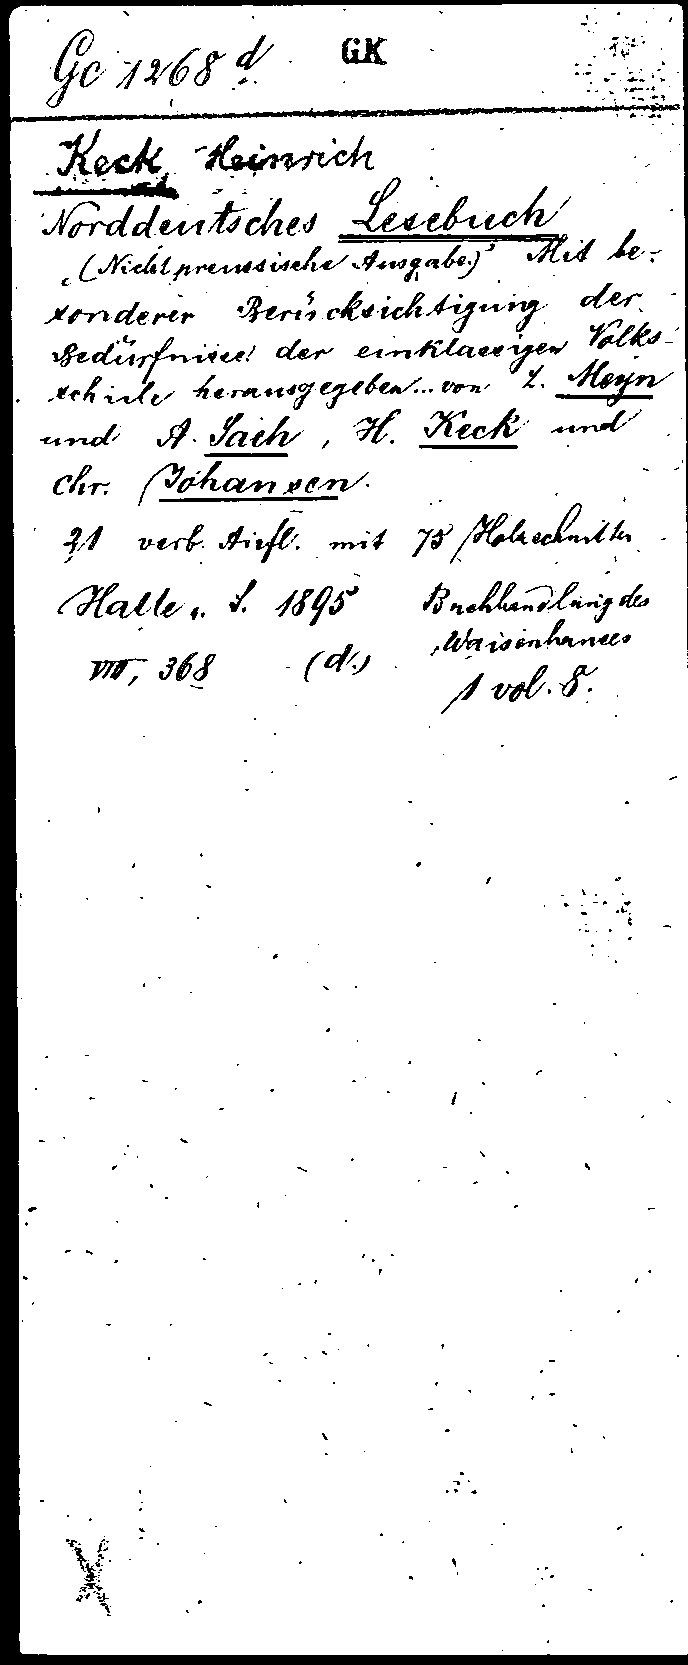 Gc 1268 d GK
Keck, Heinrich
Norddeutsches Lesebuch
(Nichtpreussische Ausgabe.) Mit be-
sonderer Berücksichtigung der
Bedürfnisse der einklassigen Volks-
schule herausgegeben... von L. Meyn
und A. Sach, H. Keck und
Chr. Johansen.
21 verb. Aufl. mit 75 Holzschnitten
Halle a. S. 1895 Buchhandlung des
Waisenhauses
VIII, 368 (d.)
1 vol. 8.
X